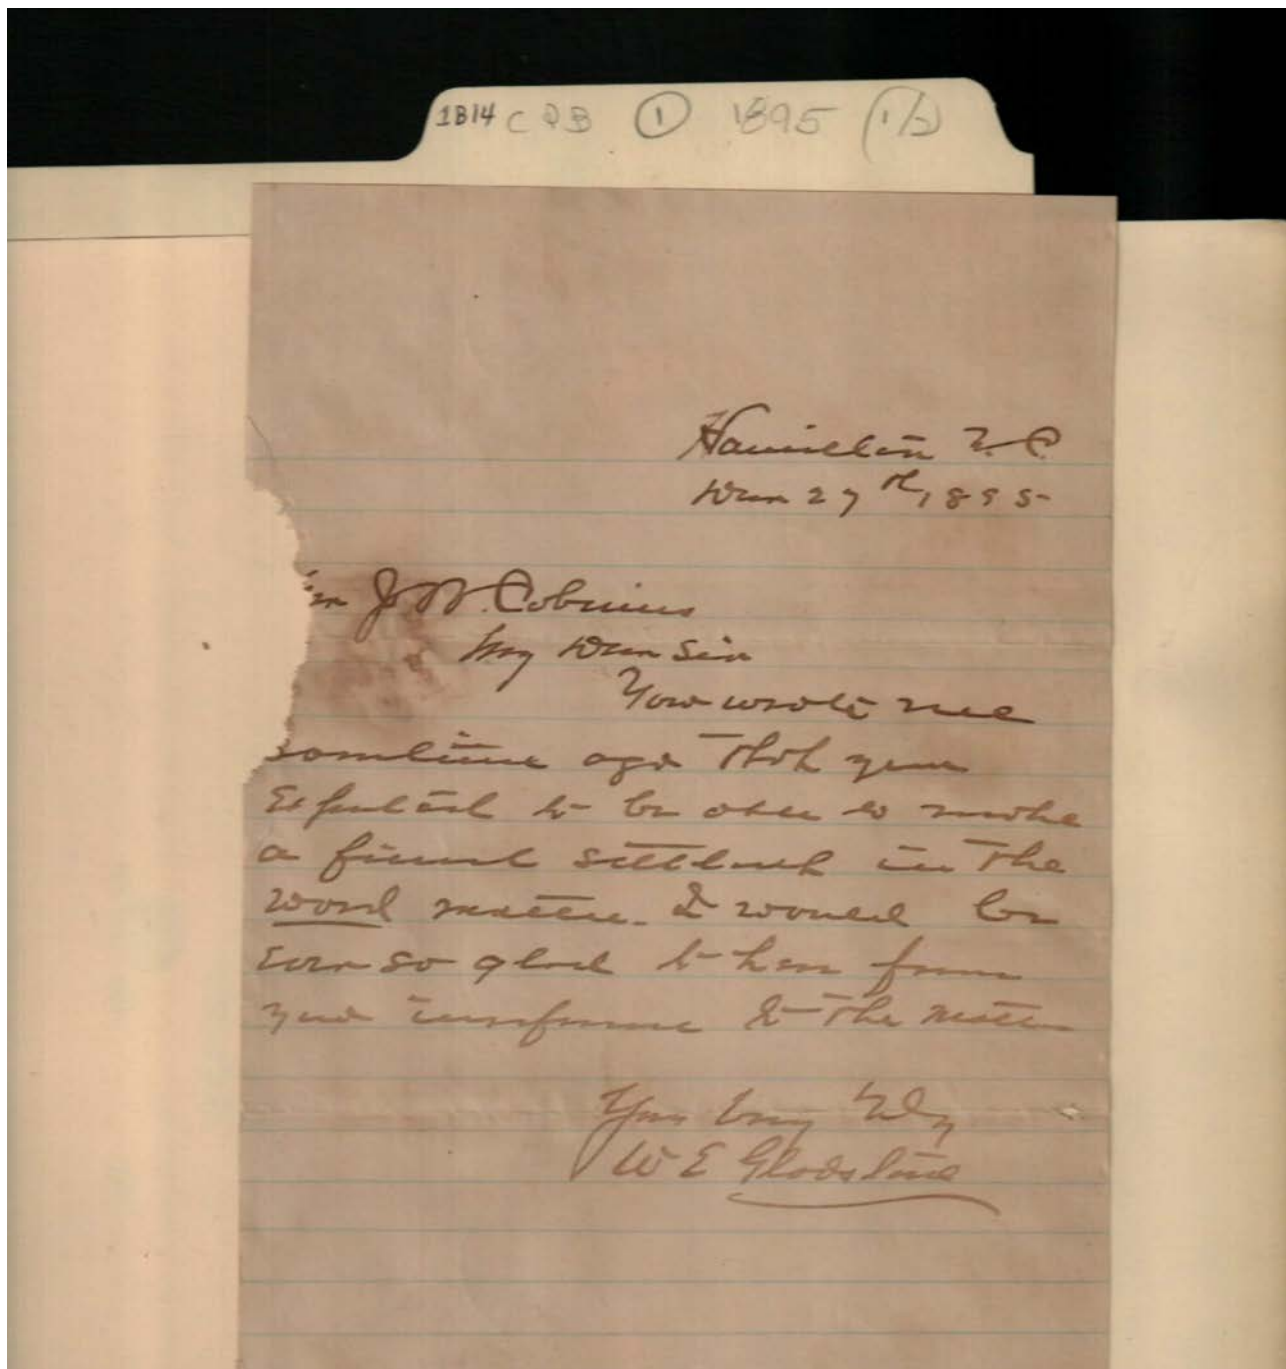 1B14 CDB ① 1895 (1/2)
Hamilton N.C.
27th, 1895
J W.
My Dear Sir
You wrote me
sometime ago that you
Expected to be over to make
a final settlement in the
wood matter. I would be
Ever so glad to hear from
you in the matter
Yours Very Truly
W E Gladstone